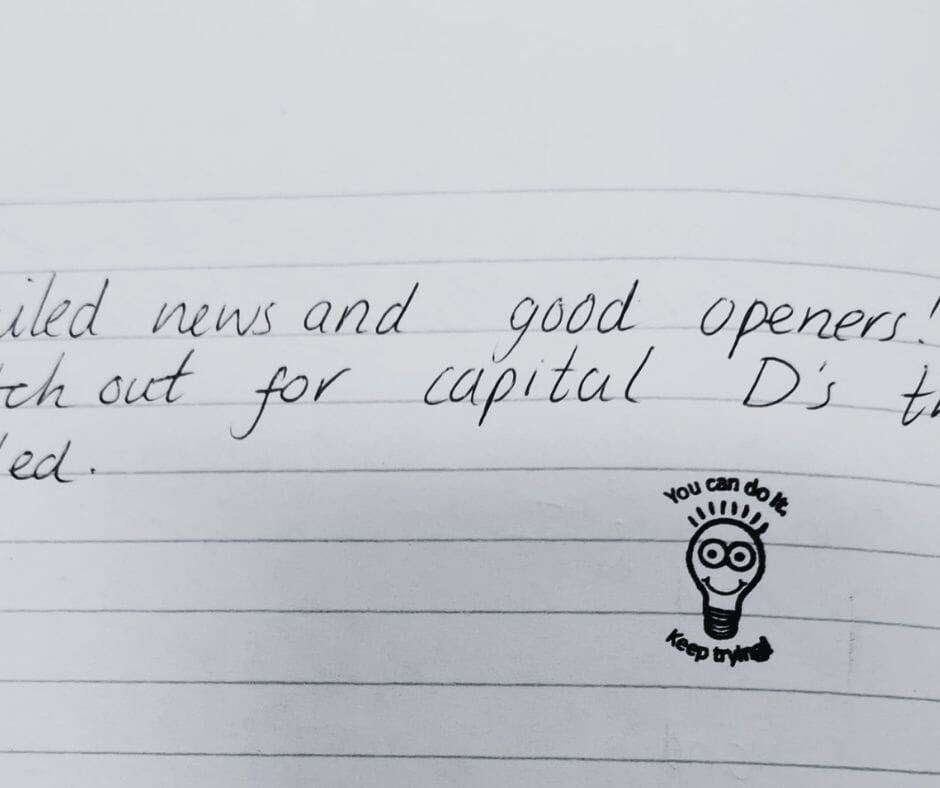 iled news and good openers!
tch out for capital D's th
ed.
You can do it.
Keep trying!